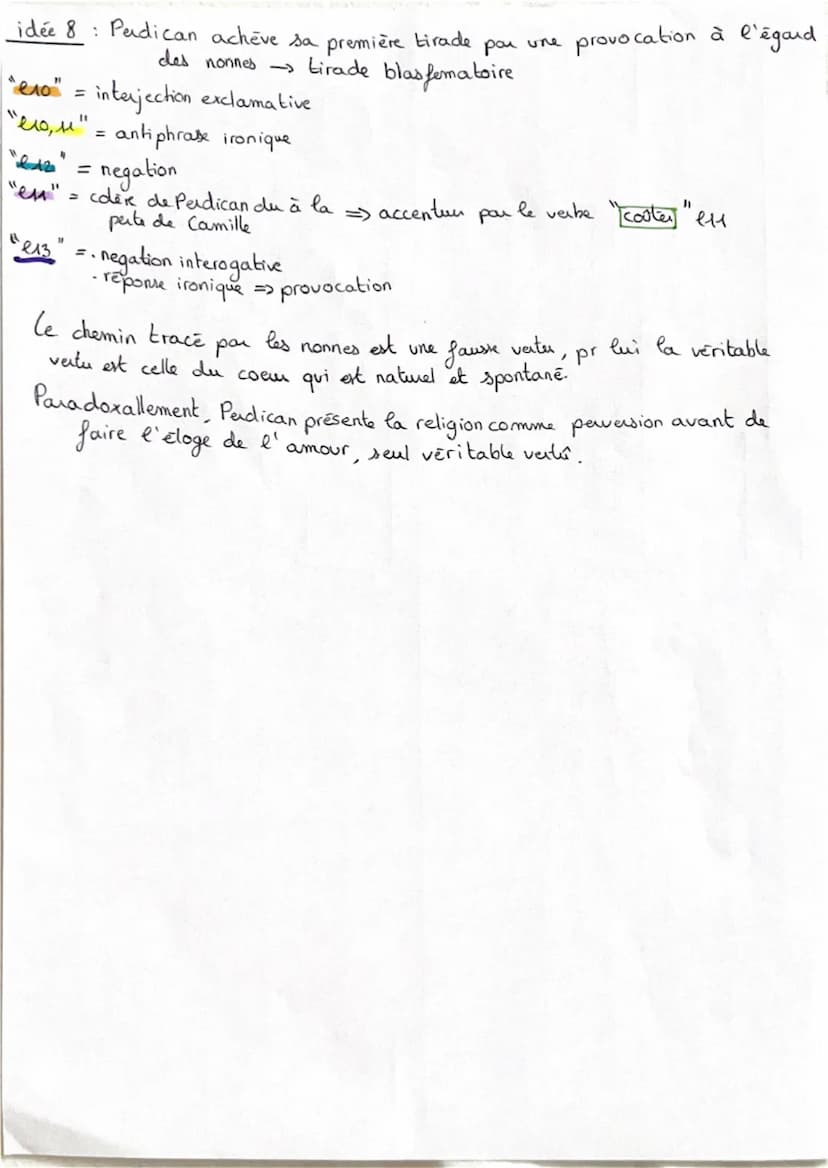 idée 8 : Perdican achève sa première tirade par une provocation à l'égard
des nonnes → tirade blasfematoire
"l10" = interjection exclamative
"l10,11" = antiphrase ironique
"l12" = negation
"l11" = colère de Perdican du à la ⇒ accentuer par le verbe "coûter" l11
perte de Camille
"l13" = · negation interogative
· réponse ironique ⇒ provocation
Le chemin tracé par les nonnes est une fausse vertu, pr lui la véritable
vertu est celle du coeur qui est naturel et spontané.
Paradoxallement, Perdican présente la religion comme perversion avant de
faire l'éloge de l'amour, seul véritable vertu.